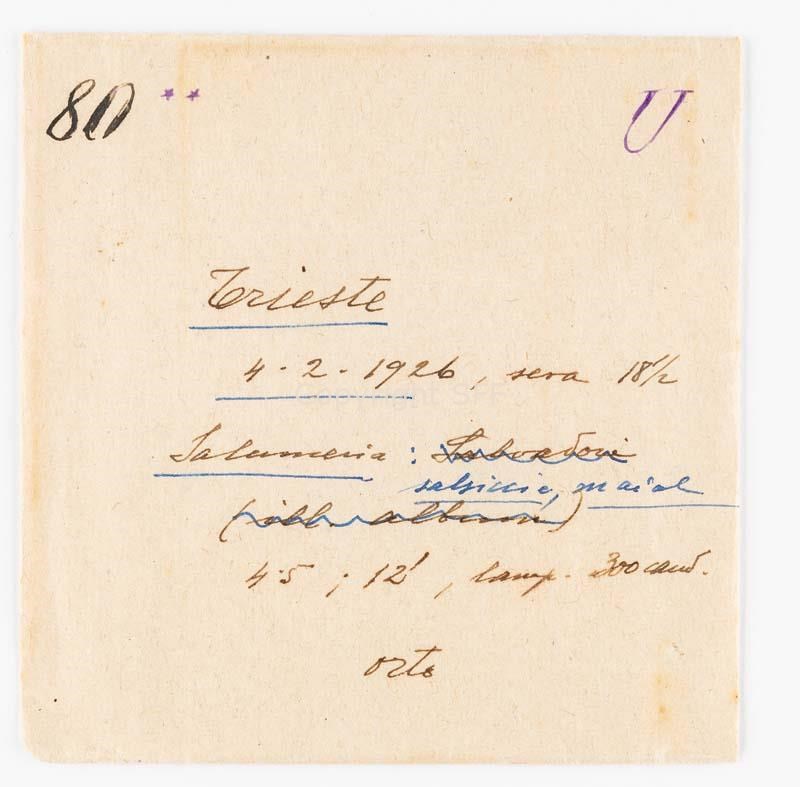 80 ** U
Trieste
4·2·1926, sera 18½
Salumeria: Salvadori
salsiccie, maial
(ill. album)
4·5 ; 12' , lamp. 300 cand.
orto
Copyright SFF